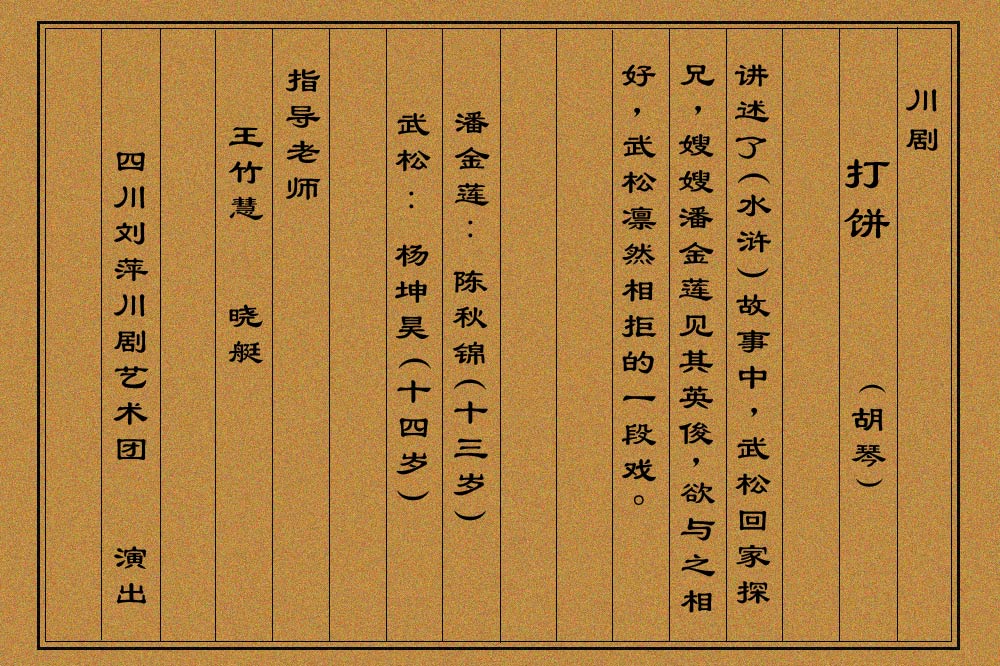 川剧
打饼 （胡琴）
讲述了（水浒）故事中，武松回家探
兄，嫂嫂潘金莲见其英俊，欲与之相
好，武松凛然相拒的一段戏。
潘金莲： 陈秋锦（十三岁）
武松： 杨坤昊（十四岁）
指导老师
王竹慧 晓艇
四川刘萍川剧艺术团 演出